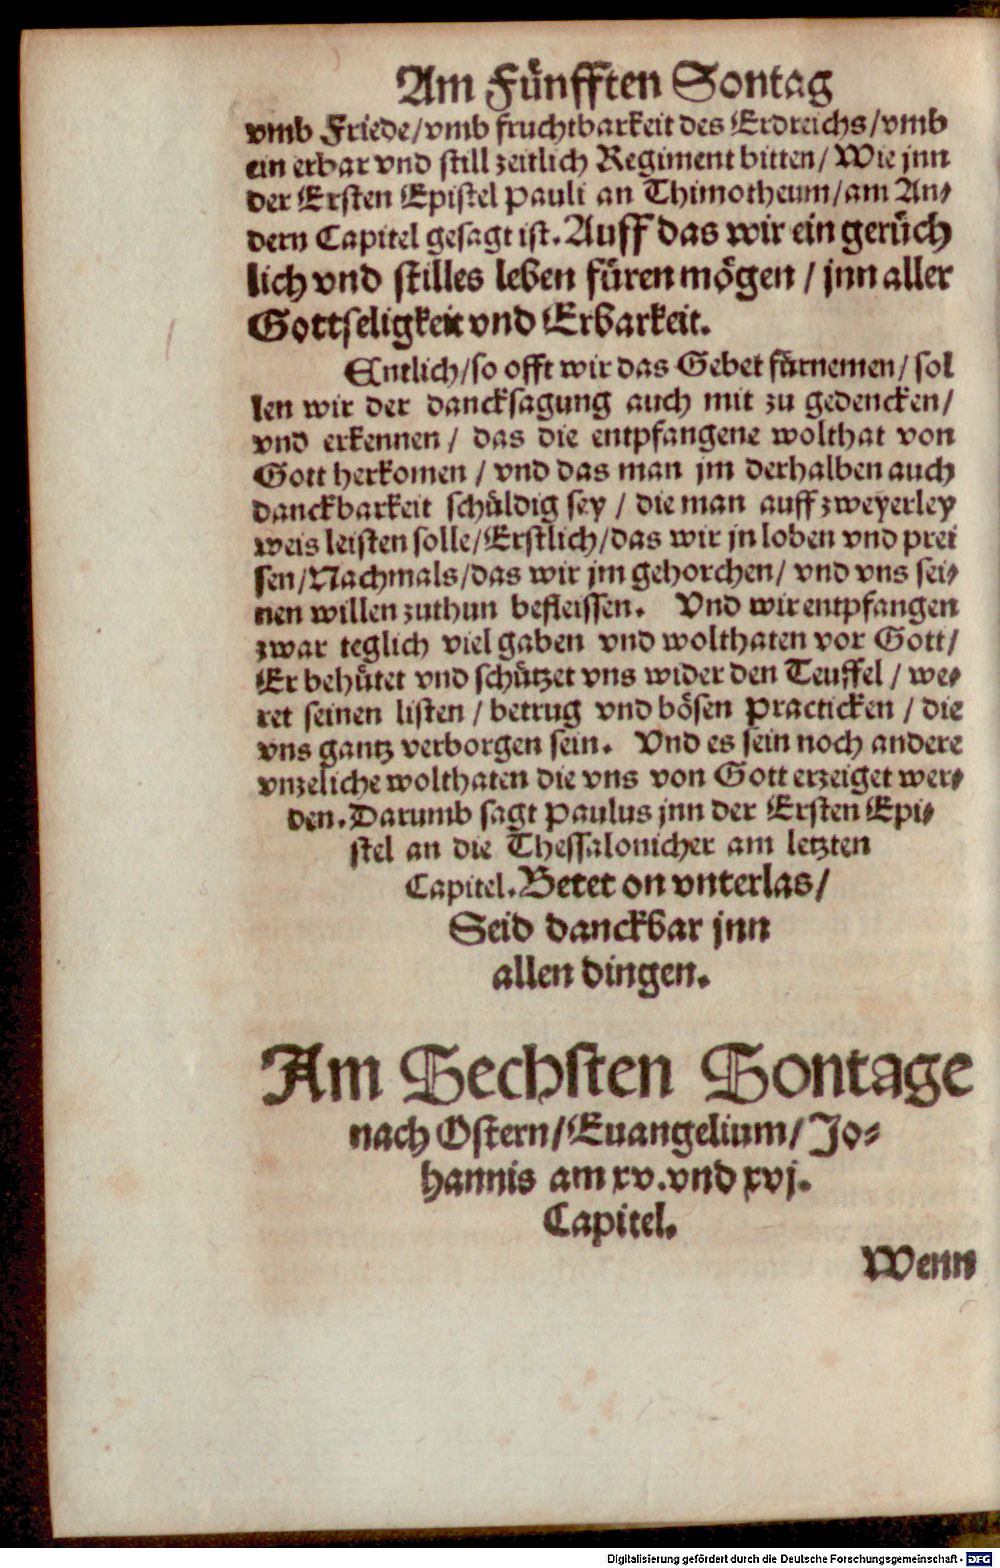 Am Fünfften Sontag
vmb Friede/vmb fruchtbarkeit des Erdreichs/vmb
ein erbar vnd still zeitlich Regiment bitten/ Wie jnn
der Ersten Epistel Pauli an Thimotheum/am An-
dern Capitel gesagt ist. Auff das wir ein gerüch
lich vnd stilles leben füren mögen / jnn aller
Gottseligkeit vnd Erbarkeit.
Entlich/so offt wir das Gebet fürnemen/ sol
len wir der dancksagung auch mit zu gedencken/
vnd erkennen / das die entpfangene wolthat von
Gott herkomen / vnd das man jm derhalben auch
danckbarkeit schüldig sey / die man auff zweyerley
weis leisten solle/Erstlich/das wir jn loben vnd prei
sen/Nachmals/das wir jm gehorchen/ vnd vns sei-
nen willen zuthun befleissen. Vnd wir entpfangen
zwar teglich viel gaben vnd wolthaten vor Gott/
Er behütet vnd schützet vns wider den Teuffel / we-
ret seinen listen / betrug vnd bösen Practicken / die
vns gantz verborgen sein. Vnd es sein noch andere
vnzeliche wolthaten die vns von Gott erzeiget wer-
den. Darumb sagt Paulus jnn der Ersten Epi-
stel an die Thessalonicher am letzten
Capitel. Betet on vnterlas/
Seid danckbar jnn
allen dingen.
Am Sechsten Sontage
nach Ostern/Euangelium/ Jo-
hannis am xv. vnd xvj.
Capitel.
Wenn
Digitalisierung gefördert durch die Deutsche Forschungsgemeinschaft - DFG